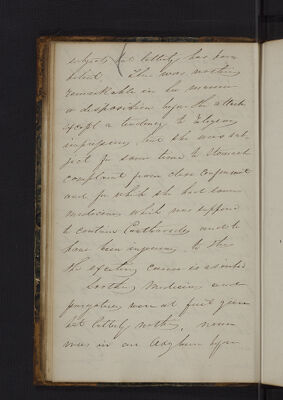 subjects but latterly has been
silent. There was nothing
remarkable in her manner
or disposition before the attack
except a tendency to Religious
but she was sub-
ject for some time to stomach
complaint from close confinement
and for which she had some
medicines which was supposed
to contain Cantharides and to
have been injurious. to this
the exciting cause is ascribed
Soothing Medicines and
purgatives were at first given
but latterly nothing. never
was in an Asylum before